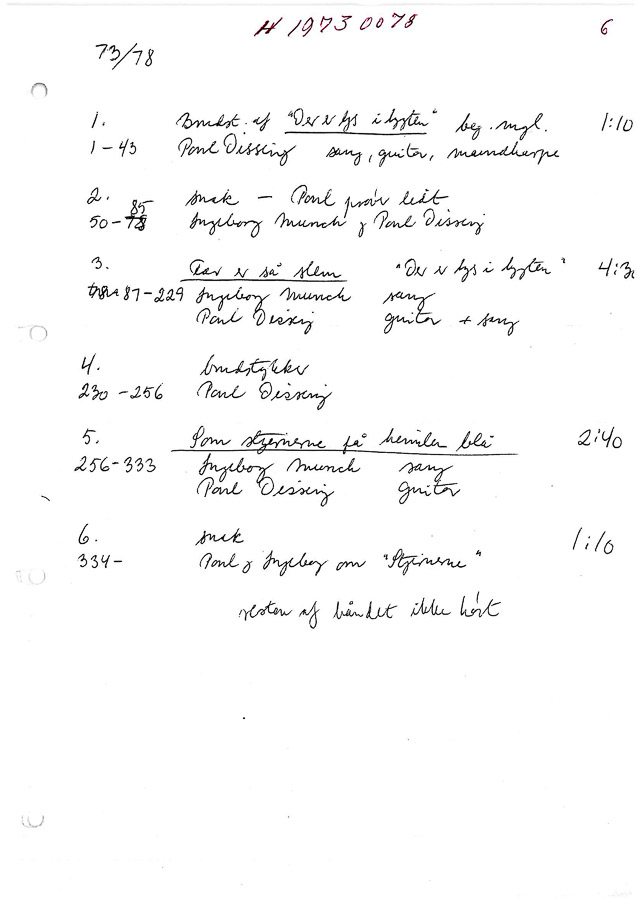 H 1973 0078 6
73/78
1. Brudst. af "Der er lys i lygten" beg. mgl. 1:10
1-43 Poul Dissing sang, guitar, mundharpe
2. snak - Poul prøver lidt
50-85 Ingeborg Munch & Poul Dissing
3. Far er så slem "Der er lys i lygten" 4:30
87-229 Ingeborg Munch sang
Poul Dissing guitar + sang
4. brudstykker
230-256 Poul Dissing
5. Som stjernerne på himlen blå 2:40
256-333 Ingeborg Munch sang
Poul Dissing guitar
6. snak 1:10
334- Poul & Ingeborg om "Stjernerne"
resten af båndet ikke hørt